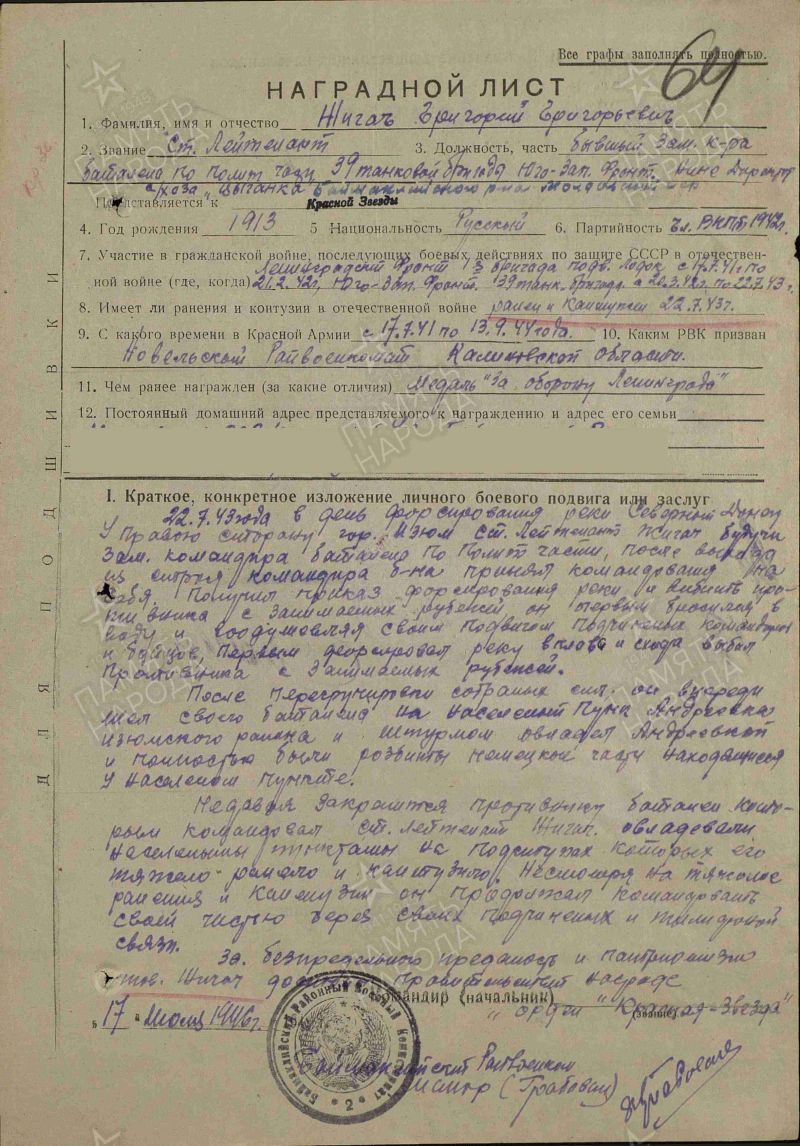 Все графы заполнять полностью.
64
НАГРАДНОЙ ЛИСТ
1. Фамилия, имя и отчество Жигач Григорий Григорьевич
2. Звание Ст. Лейтенант 3. Должность, часть бывший Зам. к-ра
баталена по полит части 39 танковой бригады Юго-Зап. Фронт. Директ
с/хоза "Цыганка"
Представляется к Красной Звезды
4. Год рождения 1913 5 Национальность Русский 6. Партийность чл. ВКПб 1942г.
7. Участие в гражданской войне, последующих боевых действиях по защите СССР в отечествен-
Ленинградский Фронт бригада подв. лодок с 17.7.41г по
ной войне (где, когда) 21.2.42г, Юго-Зап. Фронт. 39 танк. бригада с по 22.7.43 г.
8. Имеет ли ранения и контузии в отечественной войне ранен и контужен 22.7.43г.
9. С какого времени в Красной Армии с 17.7.41 по 13.9.44 года. 10. Каким РВК призван
Невельский Райвоенкомат Калининской области.
11. Чем ранее награжден (за какие отличия) Медаль "За оборону Ленинграда"
12. Постоянный домашний адрес представляемого к награждению и адрес его семьи
I. Краткое, конкретное изложение личного боевого подвига или заслуг
22.7.43 года в день форсирования реки Северный Донец
у правою сторону гор. Изюм ст. Лейтенант Жигач будучи
Зам. командира баталена по полит части, после выхода
из строя командира б-на принял командования на
себя. Получил приказ форсирования реки и выбить про-
тивника с занимаемых рубежей он первым бросился в
воду и своим подвигом подчиненых командиров
и бойцов, первым форсировал реку вплавь и схода выбил
противника с занимаемых рубежей.
После перегрупировки собраных сил он впереди
шел своего баталена на населеный пунк Андреевка
изюмского района и штурмом овладел Андреевкой
и полностью были розбиты немецкой части находящиеся
у населеном пункте.
Недавая закрепится противнику баталён кото-
рым командовал ст. лейтенант Жигач. овладевали
населеными пунктами на подступах которых его
тяжело ранело и контузило. Несмотря на тяжолое
ранения и контузии он продолжал командовать
своей частью через своих подчиненых и
связи.
За безпредельного преданость и патриотизм
тов. Жигач правительственой награде
Командир (начальник)
"орден "Красная-Звезда"
(звание)
"17" Июля 1946 г.
Райвоенком
майор (Грабовец)
2
ДЛЯ ПОДШИВКИ
ПАМЯТЬ НАРОДА